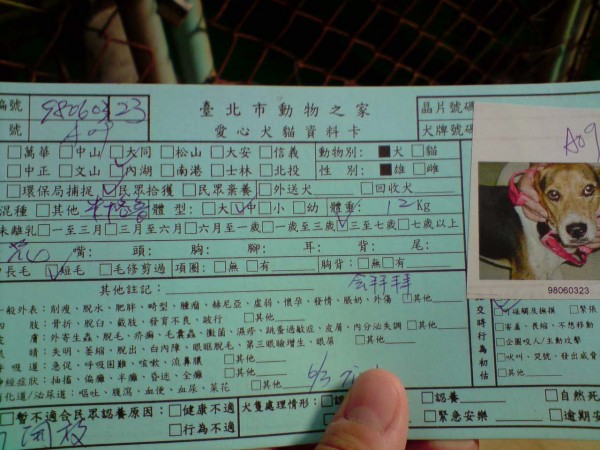 編號 98060323 臺北市動物之家 晶片號碼
號 A09 愛心犬貓資料卡 犬牌號碼
A09
□萬華 □中山 □大同 □松山 □大安 □信義 動物別: ■犬 □貓
□中正 □文山 □內湖 □南港 □士林 □北投 性 別: ■雄 □雌
□環保局捕捉 □民眾拾獲 □民眾棄養 □外送犬 □回收犬
混種 □其他 體 型: □大 □中 □小 □幼 體重: 12 Kg
未離乳 □一至三月 □三月至六月 □六月至一歲 □一歲至三歲 □三至七歲 □七歲以上
嘴: 頭: 胸: 腳: 耳: 背: 尾:
98060323
中長毛 □短毛 □毛修剪過 項圈: □無 □有 胸背: □無 □有
其他註記: 會拜拜
一般外表: 削瘦、脫水、肥胖、畸型、腫瘤、赫尼亞、虛弱、懷孕、發情、脹奶、外傷 □其他
四 肢: 骨折、脫臼、截肢、發育不良、跛行 □其他
皮 膚: 外寄生蟲、脫毛、疥癬、毛囊蟲、黴菌、濕疹、跳蚤過敏症、皮膚、內分泌失調 □其他
眼 睛: 失明、萎縮、脫出、白內障、眼瞼脫毛、第三眼瞼增生、眼屎 □其他
呼 吸 道: 急促、呼吸困難、咳嗽、流鼻膿 □其他
神經症狀: 抽搐、偏癱、半癱、昏迷、全癱 □其他
消化道/泌尿道: 嘔吐、腹瀉、血便、血尿、菜花 □其他
交時行為初估
□可碰觸及撫摸
□害羞、畏縮、不想移動
□會咬人/主動攻擊
□吠叫、哭號、發出威脅
□暫不適合民眾認養原因: □健康不適 犬隻處理情形: □認養 □自然死
□行為不適 □緊急安樂 □逾期安